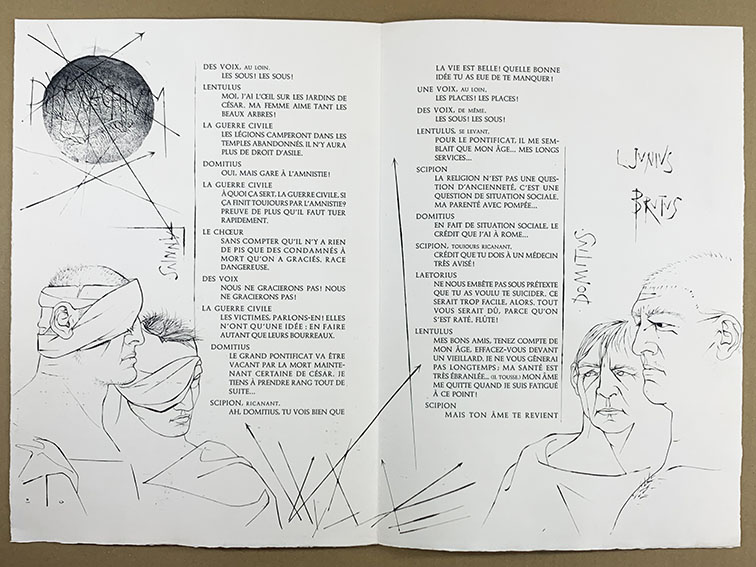 DES VOIX, AU LOIN.
LES SOUS! LES SOUS!
LENTULUS
MOI, J'AI L'ŒIL SUR LES JARDINS DE
CÉSAR. MA FEMME AIME TANT LES
BEAUX ARBRES!
LA GUERRE CIVILE
LES LÉGIONS CAMPERONT DANS LES
TEMPLES ABANDONNÉS. IL N'Y AURA
PLUS DE DROIT D'ASILE.
DOMITIUS
OUI, MAIS GARE À L'AMNISTIE!
LA GUERRE CIVILE
À QUOI ÇA SERT, LA GUERRE CIVILE, SI
ÇA FINIT TOUJOURS PAR L'AMNISTIE?
PREUVE DE PLUS QU'IL FAUT TUER
RAPIDEMENT.
LE CHŒUR
SANS COMPTER QU'IL N'Y A RIEN
DE PIS QUE DES CONDAMNÉS À
MORT QU'ON A GRACIÉS. RACE
DANGEREUSE.
DES VOIX
NOUS NE GRACIERONS PAS! NOUS
NE GRACIERONS PAS!
LA GUERRE CIVILE
LES VICTIMES, PARLONS-EN! ELLES
N'ONT QU'UNE IDÉE : EN FAIRE
AUTANT QUE LEURS BOURREAUX.
DOMITIUS
LE GRAND PONTIFICAT VA ÊTRE
VACANT PAR LA MORT MAINTE-
NANT CERTAINE DE CÉSAR. JE
TIENS À PRENDRE RANG TOUT DE
SUITE...
SCIPION, RICANANT.
AH, DOMITIUS, TU VOIS BIEN QUE
LA VIE EST BELLE! QUELLE BONNE
IDÉE TU AS EUE DE TE MANQUER!
UNE VOIX, AU LOIN.
LES PLACES! LES PLACES!
DES VOIX, DE MÊME.
LES SOUS! LES SOUS!
LENTULUS, SE LEVANT.
POUR LE PONTIFICAT, IL ME SEM-
BLAIT QUE MON ÂGE... MES LONGS
SERVICES...
SCIPION
LA RELIGION N'EST PAS UNE QUES-
TION D'ANCIENNETÉ, C'EST UNE
QUESTION DE SITUATION SOCIALE.
MA PARENTÉ AVEC POMPÉE...
DOMITIUS
EN FAIT DE SITUATION SOCIALE, LE
CRÉDIT QUE J'AI À ROME...
SCIPION, TOUJOURS RICANANT.
CRÉDIT QUE TU DOIS À UN MÉDECIN
TRÈS AVISÉ!
LAETORIUS
NE NOUS EMBÊTE PAS SOUS PRÉTEXTE
QUE TU AS VOULU TE SUICIDER. CE
SERAIT TROP FACILE, ALORS. TOUT
VOUS SERAIT DÛ, PARCE QU'ON
S'EST RATÉ. FLÛTE!
LENTULUS
MES BONS AMIS, TENEZ COMPTE DE
MON ÂGE, EFFACEZ-VOUS DEVANT
UN VIEILLARD. JE NE VOUS GÊNERAI
PAS LONGTEMPS : MA SANTÉ EST
TRÈS ÉBRANLÉE... (IL TOUSSE.) MON ÂME
ME QUITTE QUAND JE SUIS FATIGUÉ
À CE POINT!
SCIPION
MAIS TON ÂME TE REVIENT
DOMITIUS
L JUNIUS
BRUTUS